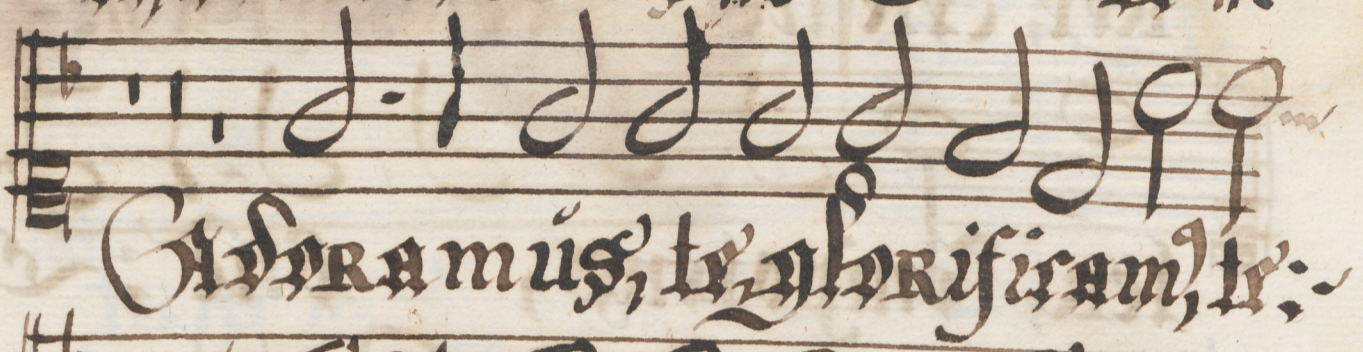 Adoramus, te, glorificam, te: